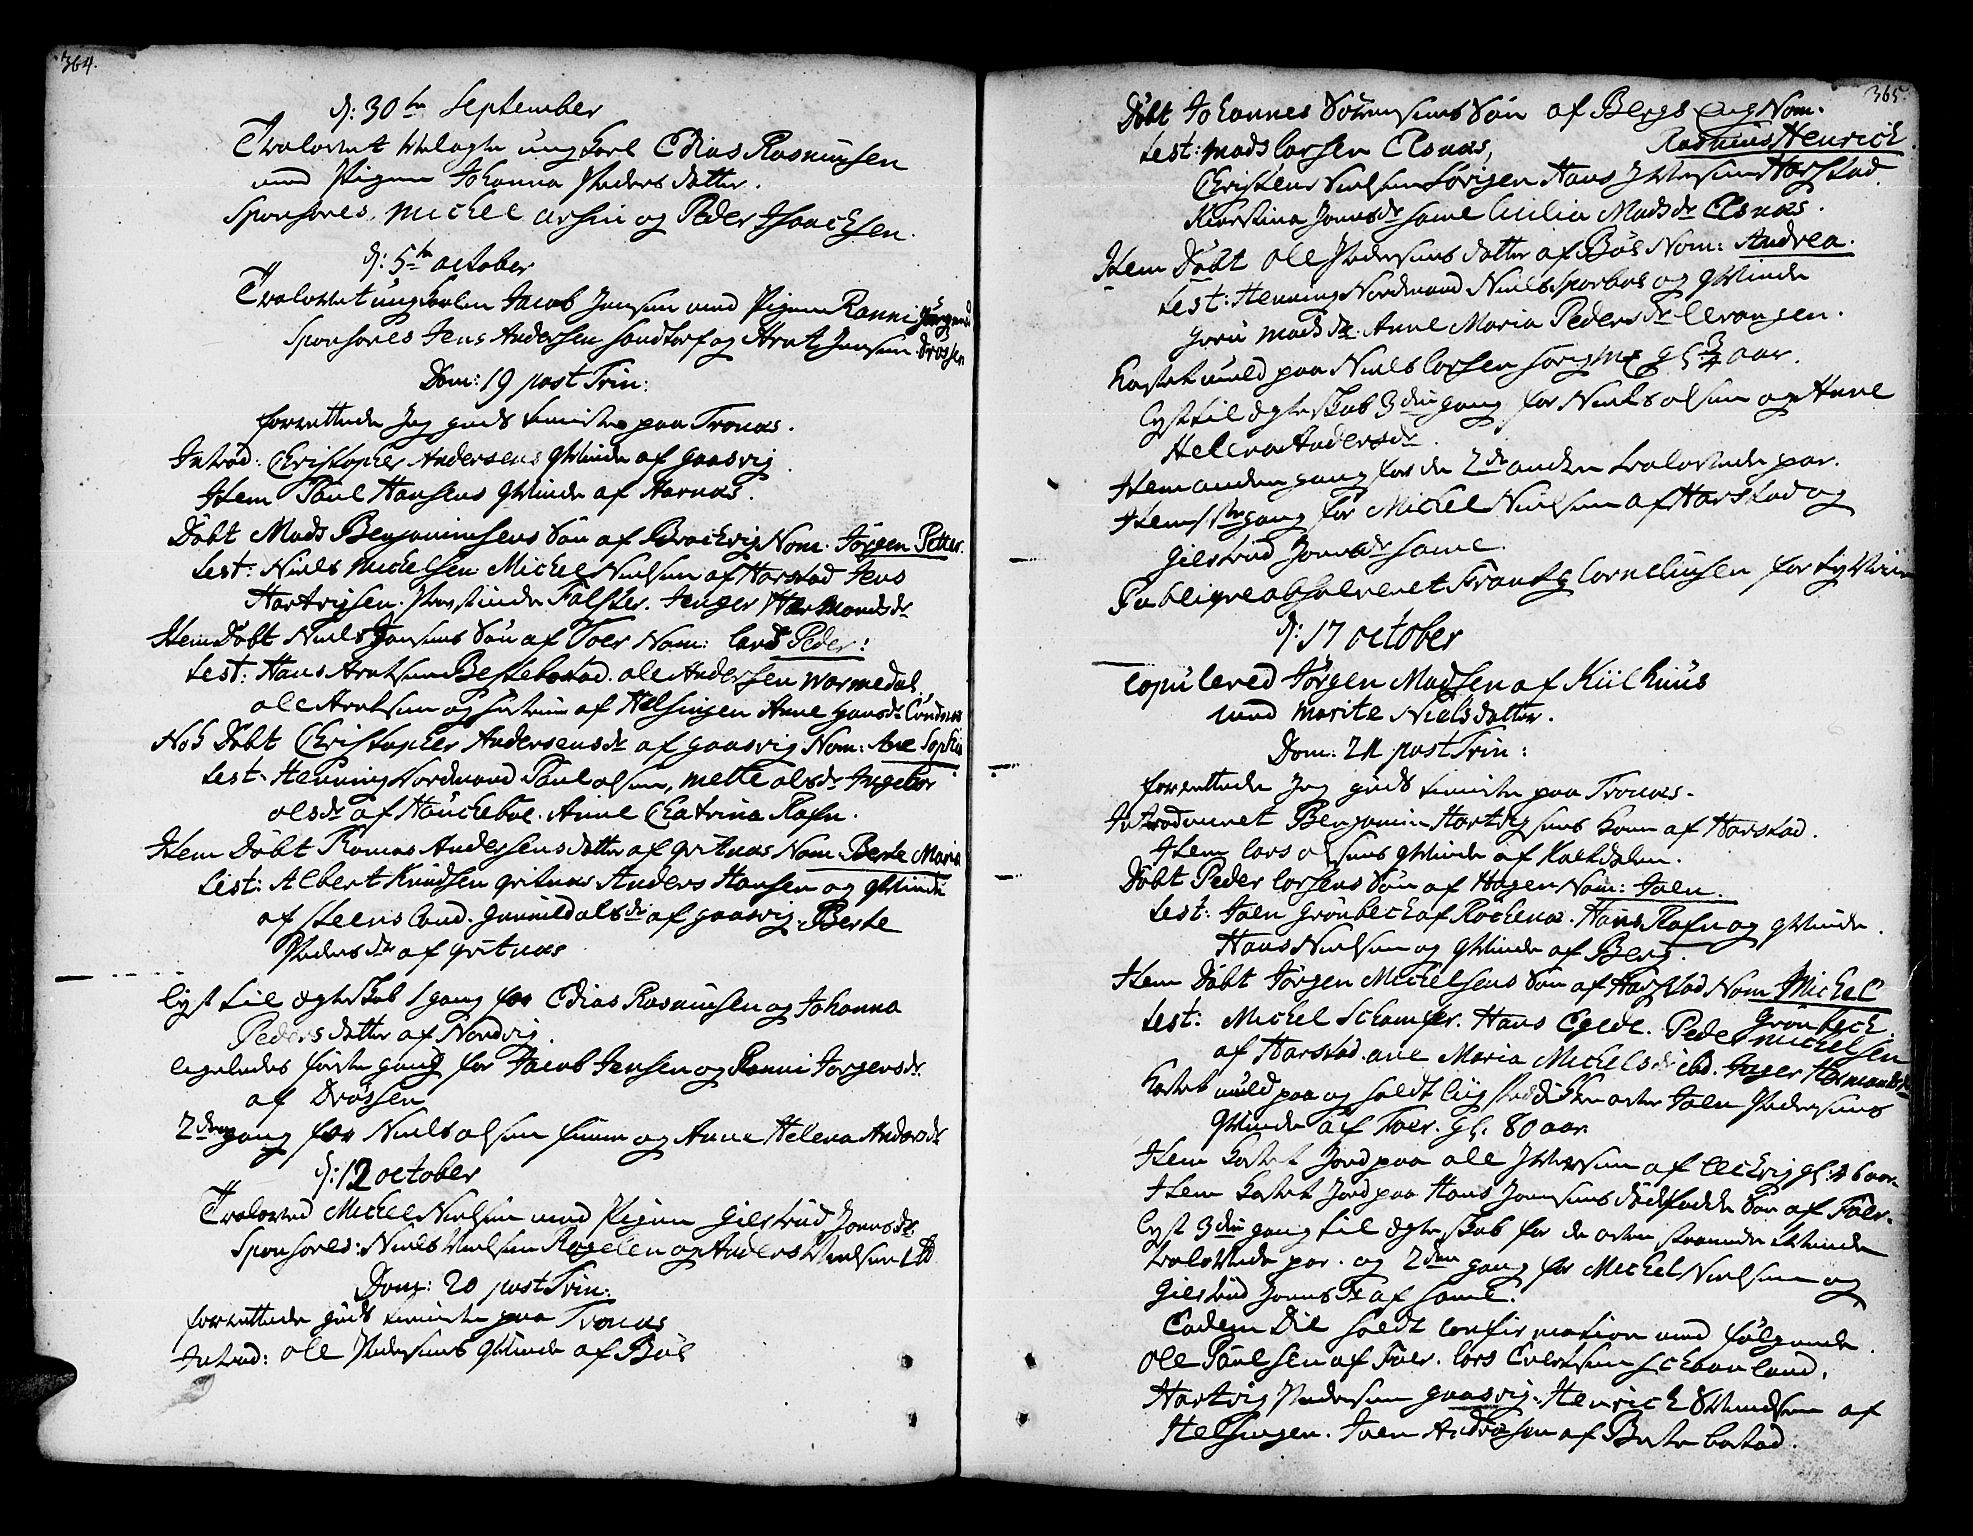 364.
d: 30te September
Trolovet velagte ung Karl Edias Rasmusen
med Pigen Johanna Peders datter.
Sponsores, Michel arsen og Peder Isaachsen.
d: 5te october
Trolovet ung Karlen Jacob Jensen med Pigen Ranni Jørgensd
Sponsores Jens Andersen Sandtorf og Arnt Jensen Drøssen
Dom: 19 post Trin:
forrettede Jeg guds tieniste paa Tronæs.
Introd: Christopher Andersens qvinde af gaasvig.
Item Paul Hansens qvinde af Harnæs.
Døbt Mads Benjaminsens Søn af Brochvig Nom. Jørgen Petter.
test: Niels Michelsen Michel Nielsen af Harstad Jens
Hartvigsen. Falster. Jenger Hermandsdr
Item Døbt Niels Jensens Søn af Foer Nom: Peder:
test: Hans Arntsen Bestebostad. ole Andersen Wormedal.
ole Arntsen og af Helsingen Anne Hansdr
Nok Døbt Christopher Andersens dr af gaasvig Nom: Ane Sophia
test. Henning Nordmand Paul olsen, Mette olsdr Ingebor
olsdr af Hauchebøe. Anne Chatrina Rafn.
Item Døbt Rasmus Andersens datter af gritnæs Nom. Berte Maria
test: Albert Knudsen gritnæs Anders Hansen og qvinde
af Steens land. gunnild olsdr af gaasvig. Berte
Pedersdr af gritnæs
lyst til ægteskab 1 gang for Edias Rasmusen og Johanna
Peders datter af Nordvig.
ligeledes første gang for Jacob Jensen og Ranni Jørgensdr.
af Drøssen
2den gang for Niels olsen og Anne Helena Andersdr
d: 12 october
Trolovet Michel Nielsen med Pigen Giertrud Jonnesdr
Sponsores: Niels Nielsen og Anders Nielsen
Dom: 20 post Trin:
forrettede guds tieniste paa Tronæs
Introd: ole Pedersens qvinde af Bøe
365.
Døbt Johannes Sørensens Søn af Bergs Nom.
Rasmus Henrich
test: Mads Larsen Elsnæs,
Christen Nielsen Sørigen Hans Iversen Harstad.
Kierstina Jonnesdr samme Cicilia Madsdr Elsnæs.
Item Døbt ole Pedersens datter af Bøe Nom: Andrea.
test: Henning Nordmand Niels og qvinde
Madsdr. Anne Maria Pedersdr Elevangen.
Kastet muld paa Niels Larsen gl: 3/4 aar.
lyst til ægteskab 3die gang for Niels olsen og Anne
Helena Andersdr.
Item anden gang for de 2de andre trolovede par.
Item 1te gang for Michel Nielsen af Harstad og
Giertrud Jonnesdr samme.
Publiqve absolveret Frantz Cornelinsen for
d: 17 october
Copulered Jørgen Madsen af Kiilhuus
med Marite Niels datter.
Dom: 21 post Trin:
forrettede Jeg guds tieniste paa Tronæs.
Introduceret Benjamin Hartvigsens kone af Harstad.
Item Lars olsens qvinde af Kalkdalen.
Døbt Peder Larsens Søn af Hagen Nom: Joen.
test: Joen Grønbech af Røchenæs. Hans Rafn og qvinde.
Hans Nielsen og qvinde af Berg.
Item Døbt Jørgen Michelsens Søn af Harstad Nom Michel
Grønbech.
test: Michel Hans Egede. Peder Michelsen
af Harstad. ane Maria Michelsdr ibd. Inger Hermandsdr
Kastet muld paa og holdt liig over Joen Pedersens
qvinde af Foer. gl. 80 aar
Item kastet Jord paa ole Iversen af gl:
Item kastet Jord paa Hans Jensens dødfødde Søn af Foer.
lyst 3die gang til ægteskab for de
trolovede par. og 2den gang for Michel Nielsen og
Giertrud Jonnesdr af samme.
Eadem Die holdt confirmation med følgende.
Ole Paulsen af Foer. Lars Evertsen
Hartvig Pedersen gaasvig. Henrich af
Helsingen. Joen Andersen af Bestebostad.